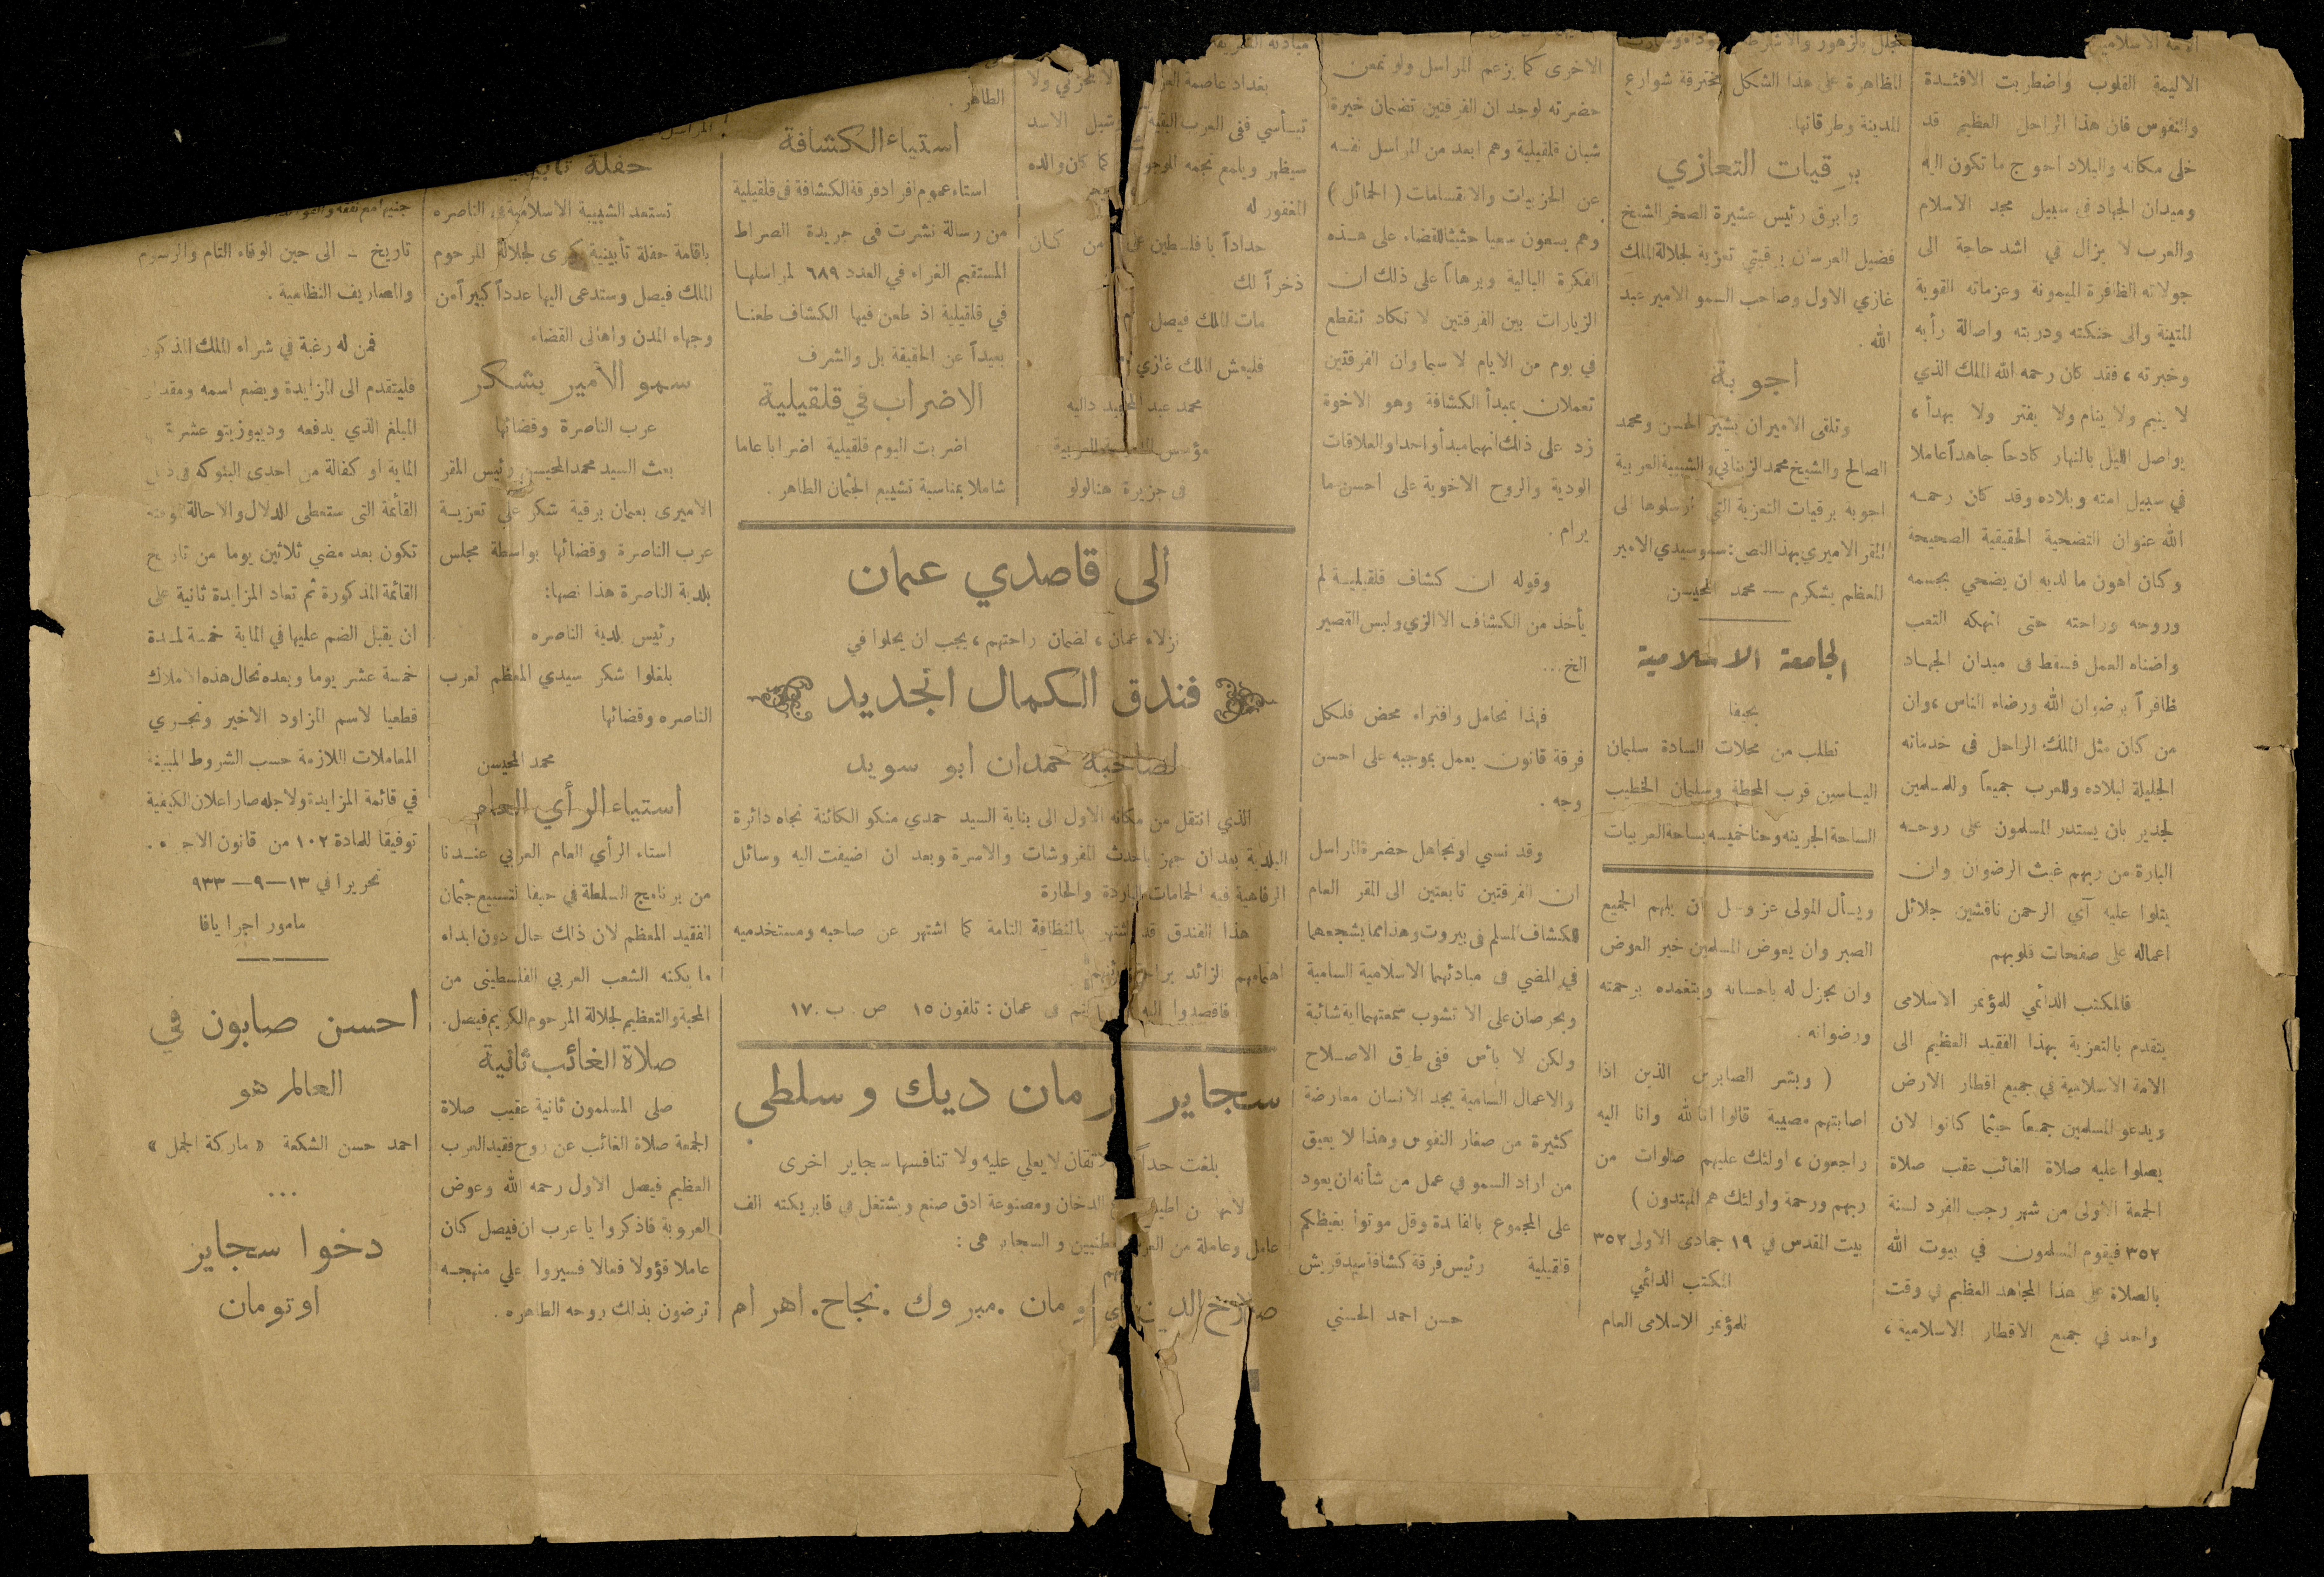 الامة الاسلامية
الاليمة القلوب واضطربت الافئدة
والنفوس فان هذا الراحل العظيم قد
خلى مكانه والبلاد احوج ما تكون اليه
وميدان الجهاد في سبيل مجد الاسلام
والعرب لا يزال في اشد حاجة الى
جولاته الظافرة الميمونة وعزماته القوية
المتينة والى حنكته ودربته واصالة رأيه
وخبرته ، فقد كان رحمه الله الملك الذي
لا ينيم ولا ينام ولا يفتر ولا يهدأ ،
يواصل الليل بالنهار كادحاً جاهداً عاملا
في سبيل امته وبلاده وقد كان رحمه
الله عنوان التضحية الحقيقية الصحيحة
وكان اهون ما لديه ان يضحي بجسمه
وروحه وراحته حتى انهكه التعب
واضناه العمل فسقط في ميدان الجهاد
ظافراً برضوان الله ورضاء الناس ، وان
من كان مثل الملك الراحل في خدماته
الجليلة لبلاده وللعرب جميعاً وللمسلمين
لجدير بان يستدر المسلمون على روحه
البارة من ربهم غيث الرضوان وان
يتلوا عليه آي الرحمن ناقشين جلائل
اعماله على صفحات قلوبهم
فالمكتب الدائمي للمؤتمر الاسلامى
يتقدم بالتعزية بهذا الفقيد العظيم الى
الامة الاسلامية في جميع اقطار الارض
ويدعو المسلمين جميعاً حيثما كانوا لان
يصلوا عليه صلاة الغائب عقب صلاة
الجمعة الاولى من شهر رجب الفرد لسنة
٣٥٢ فيقوم المسلمون في بيوت الله
بالصلاة على هذا المجاهد العظيم في وقت
واحد في جميع الاقطار الاسلامية ،
المظاهرة على هذا الشكل مخترقة شوارع
المدينة وطرقاتها.
برقيات التعازي
وابرق رئيس عشيرة الصخر الشيخ
فضيل العرسان برقيتي تعزية لجلالة الملك
غازي الاول وصاحب السمو الامير عبد
الله .
اجوبة
وتلقى الاميران بشير الحسن ومحمد
الصالح والشيخ محمد الزيناتي والشبيبة العربية
اجوبه برقيات التعزية التي ارسلوها الى
المقر الاميري بهذا النص : سمو سيدي الامير
المعظم يشكرم — محمد المحيسن
الجامعة الاسلامية
بحيفا
تطلب من محلات السادة سليمان
الياسين قرب المحطة وسليمان الخطيب
الساحة الجرينه وحنا خميسه بساحة العربيات
ويسأل المولى عز وجل ان يلهم الجميع
الصبر وان يعوض المسلمين خير العوض
وان يجزل له باحسانه ويتغمده برحمته
ورضوانه .
( وبشر الصابرين الذين اذا
اصابتهم مصيبة قالوا انا لله وانا اليه
راجعون ، اولئك عليهم صلوات من
ربهم ورحمة واولئك هم المهتدون )
بيت المقدس في ١٩ جمادى الاولى ٣٥٢
المكتب الدائمي
للمؤتمر الاسلامى العام
الاخرى كما يزعم المراسل ولو تمعن
حضرته لوجد ان الفرقتين تضمان خيرة
شبان قلقيلية وهم ابعد من المراسل نفسه
عن الحزبيات والانقسامات ( الحمائل )
وهم يسعون سعيا حثيثا للقضاء على هذه
الفكرة البالية وبرهانا على ذلك ان
الزيارات بين الفرقتين لا تكاد تنقطع
في يوم من الايام لا سيما وان الفرقتين
تعملان بمبدأ الكشافة وهو الاخوة
زد على ذلك انهما مبدأ واحدا والعلاقات
الودية والروح الاخوية على احسن ما
يرام .
وقوله ان كشاف قلقيلية لم
يأخذ من الكشاف الا الزي ولبس القصير
الخ...
فهذا تحامل وافتراء محض فلكل
فرقة قانون يعمل بموجبه على احسن
وجه .
وقد نسي او تجاهل حضرة المراسل
ان الفرقتين تابعتين الى المقر العام
للكشاف المسلم في بيروت وهذا مما يشجعهما
في المضي في مبادئهما الاسلامية السامية
ويحرصان على الا تشوب سمعتهما اية شائبة
ولكن لا بأس ففي طرق الاصلاح
والاعمال السامية يجد الانسان معارضة
كثيرة من صغار النفوس وهذا لا يعيق
من اراد السمو في عمل من شأنه ان يعود
على المجموع بالفائدة وقل موتوا بغيظكم
قلقيلية رئيس فرقة كشافة سيد قريش
حسن احمد الحسني
بغداد عاصمة لا تحزني ولا
تيأسي ففي العرب البقية وشبل الاسد
سيظهر ويلمع نجمه كما كان والده
المغفور له
حداداً يا فلسطين من كان
ذخراً لك
مات الملك فيصل
فليعش الملك غازي
محمد عبد داليه
مؤسس
في جزيرة هنالولو
الطاهر .
استياء الكشافة
استاء عموم افراد فرقة الكشافة في قلقيلية
من رسالة نشرت في جريدة الصراط
المستقيم الغراء في العدد ٦٨٩ لمراسلها
في قلقيلية اذ طعن فيها الكشاف طعنا
بعيداً عن الحقيقة بل والشرف
الاضراب في قلقيلية
اضربت اليوم قلقيلية اضرابا عاما
شاملا بمناسبة تشييع الجثمان الطاهر .
الى قاصدي عمان
نزلاء عمان ، لضمان راحتهم ، يجب ان يحلوا في
فندق الكمال الجديد
لصاحبه حمدان ابو سويد
الذي انتقل من مكانه الاول الى بناية السيد حمدي منكو الكائنة تجاه دائرة
البلدية بعد ان جهز باحدث المفروشات والاسرة وبعد ان اضيفت اليه وسائل
الرفاهية فيه الحمامات الباردة والحارة
هذا الفندق قد اشتهر بالنظافة التامة كما اشتهر عن صاحبه ومستخدميه
اهتمامهم الزائد
فاقصدوا اليه في عمان : تلفون ١٥ ص . ب . ١٧
سجاير مان ديك وسلطي
بلغت حداً لا يعلي عليه ولا تنافسها سجاير اخرى
لانها من الدخان ومصنوعة ادق صنع ويشتغل في فابريكته الف
عامل وعاملة من والسجاير هى :
صلاح الدين مان . مبروك . نجاح . اهرام
حفلة
تستعد الشبيبة الاسلامية في الناصره
باقامة حفلة تأبينية كبرى لجلالة المرحوم
الملك فيصل وستدعى اليها عدداً كبيراً من
وجهاء المدن واهالى القضاء
سمو الامير يشكر
عرب الناصرة وقضائها
بعث السيد محمد المحيسن رئيس المقر
الاميرى بعمان برقية شكر علي تعزية
عرب الناصرة وقضائها بواسطة مجلس
بلدية الناصرة هذا نصها :
رئيس بلدية الناصره
بلغلوا شكر سيدي المعظم لعرب
الناصره وقضائها
محمد المحيسن
استياء الرأي العام
استاء الرأي العام العربي عندنا
من برنامج السلطة في حيفا لتشييع جثمان
الفقيد المعظم لان ذلك حال دون ابداء
ما يكنه الشعب العربي الفلسطينى من
المحبة والتعظيم لجلالة المرحوم الكريم فيصل.
صلاة الغائب ثانية
صلى المسلمون ثانية عقيب صلاة
الجمعة صلاة الغائب عن روح فقيد العرب
العظيم فيصل الاول رحمه الله وعوض
العروبة فاذكروا يا عرب ان فيصل كان
عاملا قؤولا فعالا فسيروا علي منهجه
ترضون بذلك روحه الطاهره .
تاريخ – الى حين الوفاء التام والرسوم
والمصاريف النظامية .
فمن له رغبة في شراء الملك المذكور
فليتقدم الى المزايدة ويضع اسمه
المبلغ الذي يدفعه وديبوزيتو عشرة
الماية او كفالة من احدى البنوكه في
القائمة التى ستعطى الدلال والاحالة
تكون بعد مضي ثلاثين يوما من تاريخ
القائمة المذكورة ثم تعاد المزايدة ثانية على
ان يقبل الضم عليها في الماية خمسة لمدة
خمسة عشر يوما وبعده تحال هذه الاملاك
قطعيا لاسم المزاود الاخير وتجري
المعاملات اللازمة حسب الشروط المبينة
في قائمة المزايدة ولاجله صار اعلان الكيفية
توفيقا للمادة ١٠٢ من قانون
تحريرا في ١٣—٩—٩٣٣
مامور اجرا يافا
احسن صابون في
العالم هو
احمد حسن الشكعة « ماركة الجمل »
...
دخوا سجاير
اوتومان